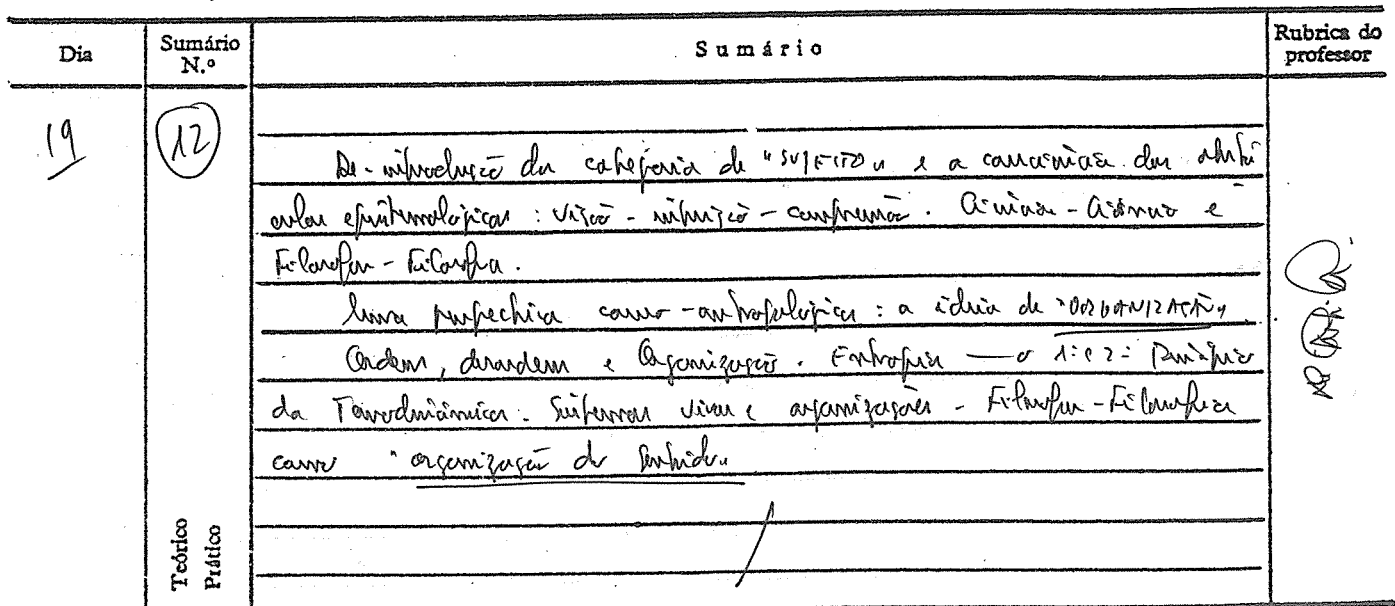 Dia
Sumário N.º
Sumário
Rubrica do professor
19
12
Re-introdução da categoria de "SUJEITO" e a consciência dos
epistemológicos: visão - intuição - compreensão. Ciência - Cientista e
Filosofia - Filósofo.
Uma perspectiva cosmo-antropológica: a ideia de "ORGANIZAÇÃO".
Ordem, desordem e Organização. Entropia — o 1º e 2º Princípio
da Termodinâmica. Sistemas vivos e organizações - Filosofia
como "organização do Sentido"
Teórico
Prático